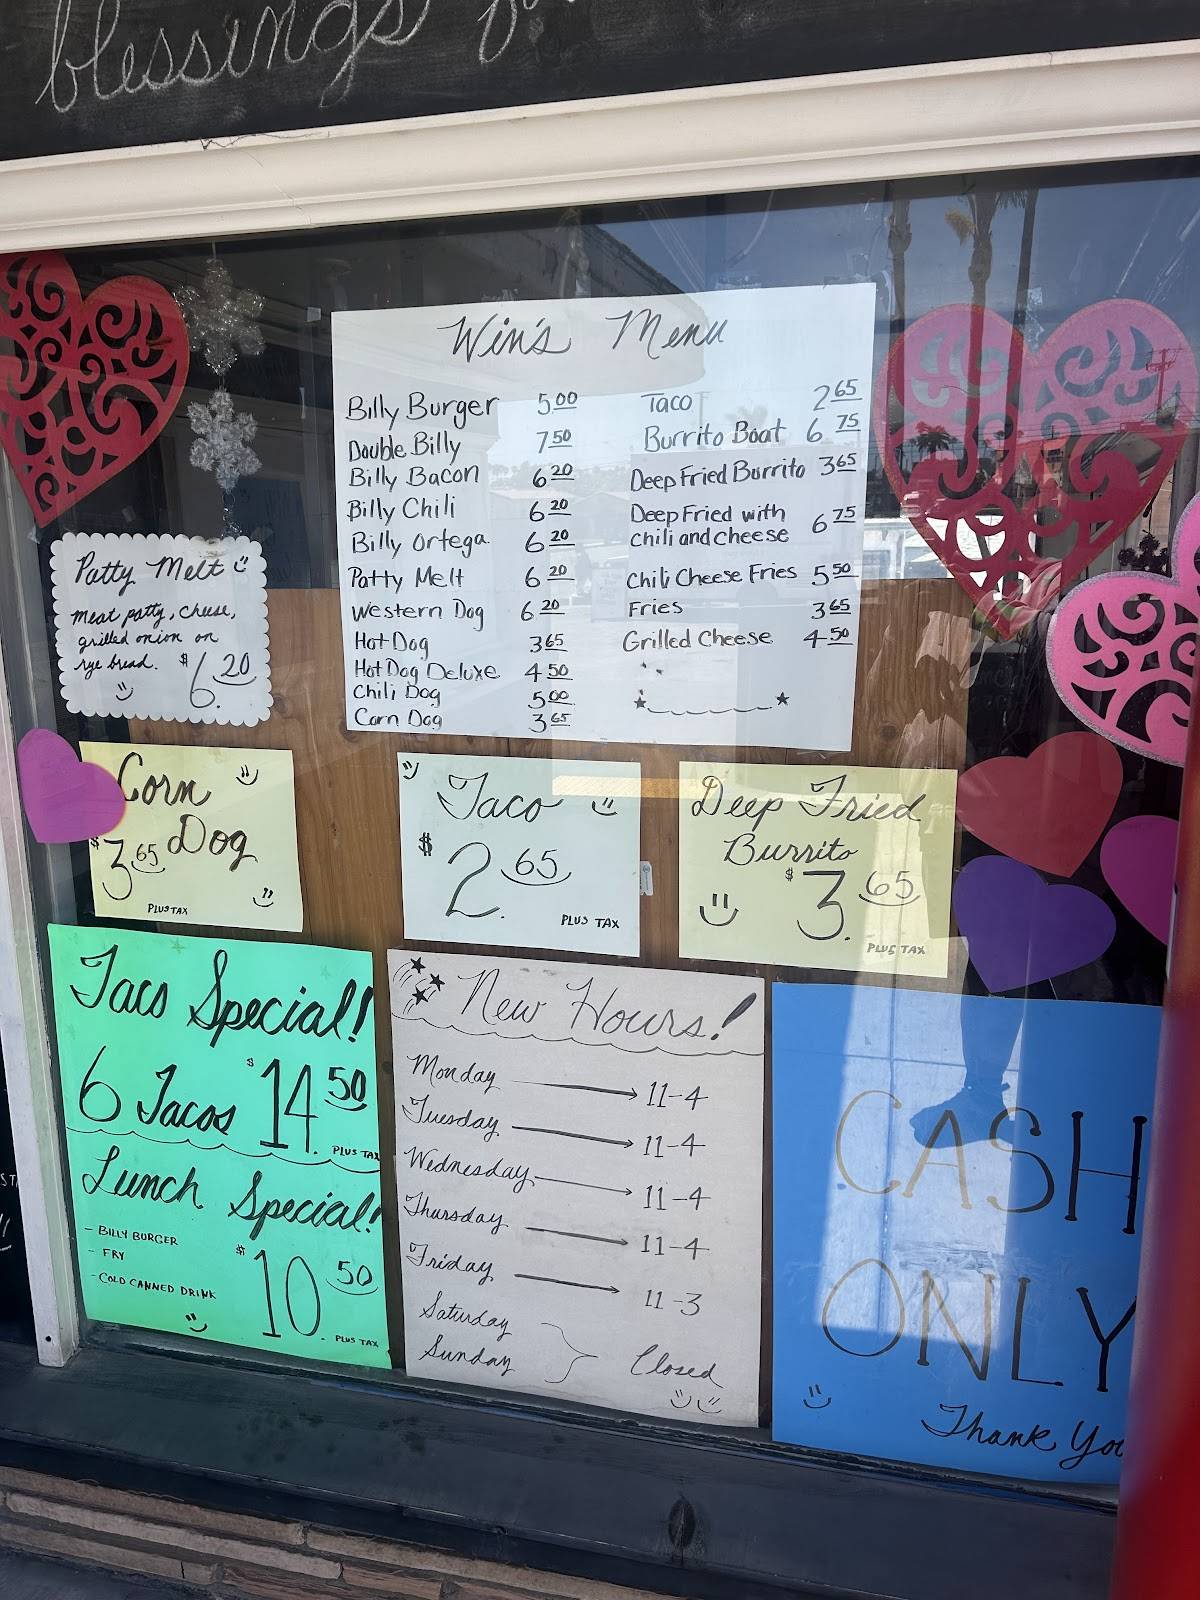 blessings
Win's Menu
Billy Burger 5.00
Double Billy 7.50
Billy Bacon 6.20
Billy Chili 6.20
Billy Ortega 6.20
Patty Melt 6.20
Western Dog 6.20
Hot Dog 3.65
Hot Dog Deluxe 4.50
Chili Dog 5.00
Corn Dog 3.65
Taco 2.65
Burrito Boat 6.75
Deep Fried Burrito 3.65
Deep Fried with
chili and cheese 6.75
Chili Cheese Fries 5.50
Fries 3.65
Grilled Cheese 4.50
Patty Melt
meat patty, cheese,
grilled onion on
rye bread. $6.20
Corn
Dog
$3.65
PLUS TAX
Taco
$2.65
PLUS TAX
Deep Fried
Burrito
$3.65
PLUS TAX
Taco Special!
6 Tacos $14.50
PLUS TAX
Lunch Special!
- BILLY BURGER
- FRY
- COLD CANNED DRINK
$10.50
PLUS TAX
New Hours!
Monday 11-4
Tuesday 11-4
Wednesday 11-4
Thursday 11-4
Friday 11-3
Saturday
Sunday
Closed
CASH
ONLY
Thank You